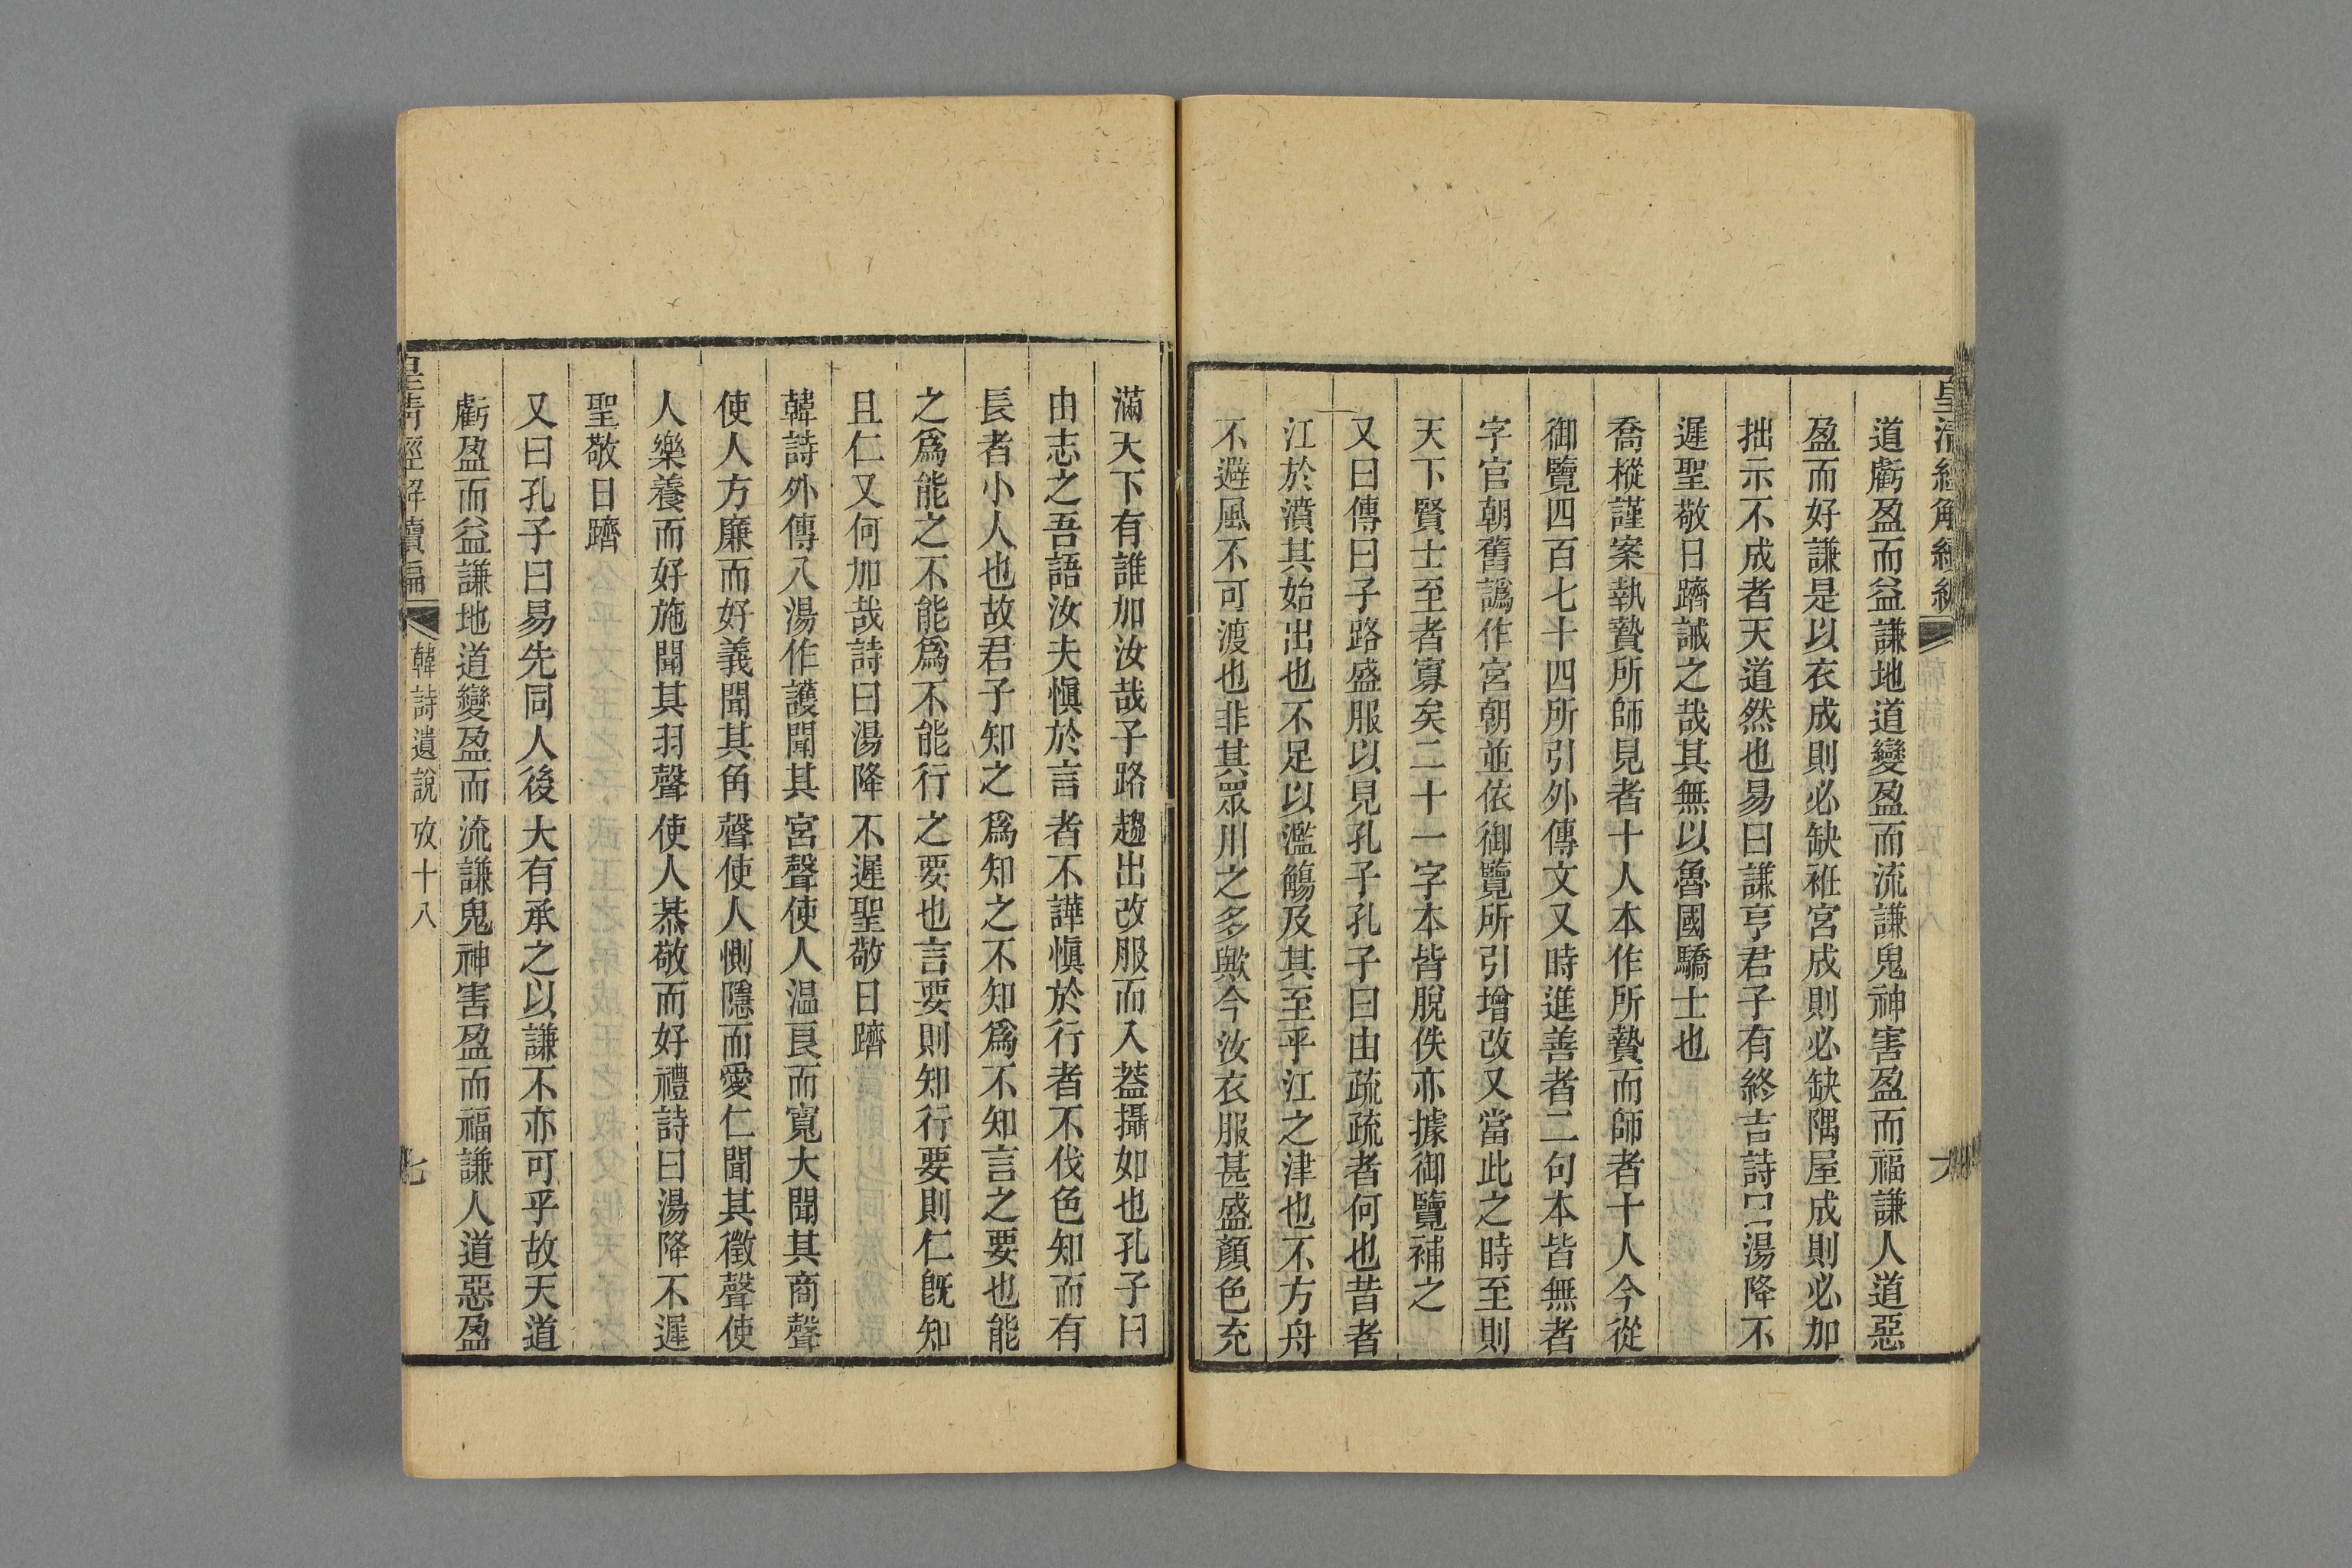 道虧盈而益謙地道變盈而流謙鬼神害盈而福謙人道惡
盈而好謙是以衣成則必缺袵宮成則必缺隅屋成則必加
拙示不成者天道然也易曰謙亨君子有終吉詩曰湯降不
遲聖敬日躋誡之哉其無以魯國驕士也
喬樅謹案執贄所師見者十人本作所贄而師者十人今從
御覽四百七十四所引外傳文又時進善者二句本皆無者
字官朝舊譌作宮朝並依御覽所引增改又當此之時至則
天下賢士至者寡矣二十一字本皆脫佚亦據御覽補之
又曰傳曰子路盛服以見孔子孔子曰由疏疏者何也昔者
江於濆其始出也不足以濫觴及其至乎江之津也不方舟
不避風不可渡也非其眾川之多歟今汝衣服甚盛顏色充
滿天下有誰加汝哉子路趨出改服而入葢攝如也孔子曰
由志之吾語汝夫愼於言者不譁愼於行者不伐色知而有
長者小人也故君子知之爲知之不知爲不知言之要也能
之爲能之不能爲不能行之要也言要則知行要則仁旣知
且仁又何加哉詩曰湯降不遲聖敬日躋
韓詩外傳八湯作護聞其宮聲使人温良而寬大聞其商聲
使人方廉而好義聞其角聲使人惻隱而愛仁聞其徵聲使
人樂養而好施聞其羽聲使人恭敬而好禮詩曰湯降不遲
聖敬日躋
又曰孔子曰易先同人後大有承之以謙不亦可乎故天道
虧盈而益謙地道變盈而流謙鬼神害盈而福謙人道惡盈
皇清經解續編 韓詩遺說攷十八 七